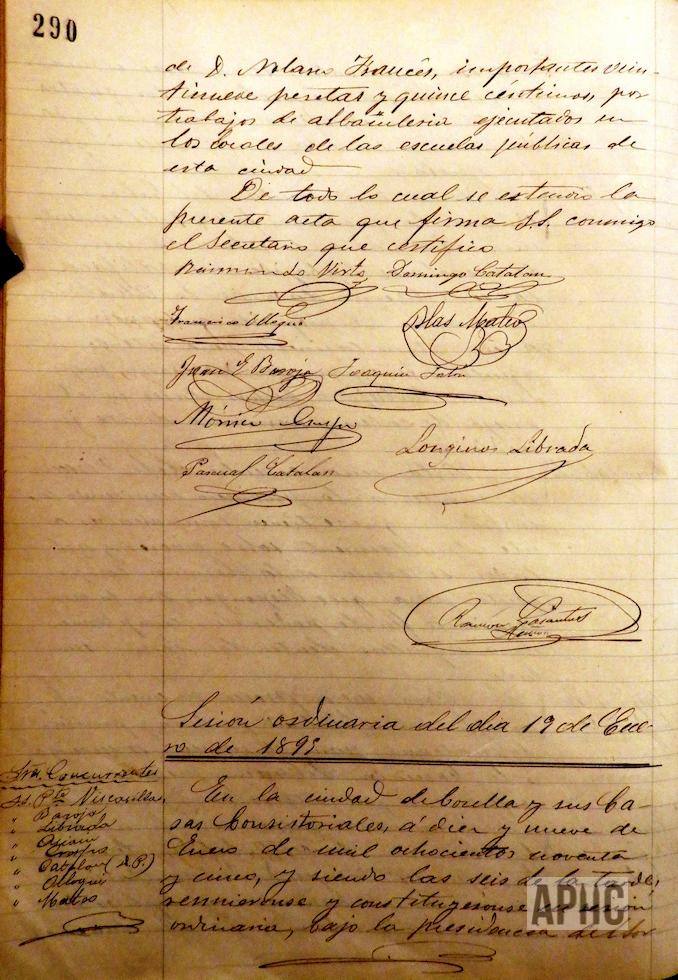 290
de D. Nolasco Francés, importantes vein-
tinueve pesetas y quince centimos, por
trabajos de albañileria ejecutados en
los locales de las escuelas públicas de
esta ciudad
De todo lo cual se extendio la
presente acta que firma S.S. conmigo
el Secretario que certifico
Raimundo Virto Domingo Catalan
Francisco Alleguí
Blas Mateo
Juan Baroja Joaquin
Mónico Crespo
Longinos Librada
Pascual Catalan
Ramón
Sesión ordinaria del dia 19 de Ene-
ro de 1895
Sres. Concurrentes
Virto
Baroja
Librada
Crespo
Catalan (D. P.)
Allegui
Mateo
En la ciudad de Corella y sus Ca-
sas Consistoriales, á diez y nueve de
Enero de mil ochocientos noventa
y cinco, y siendo las seis de la tarde,
reunieronse y constituyeronse en sesión
ordinaria, bajo la presidencia del Sor
APHC